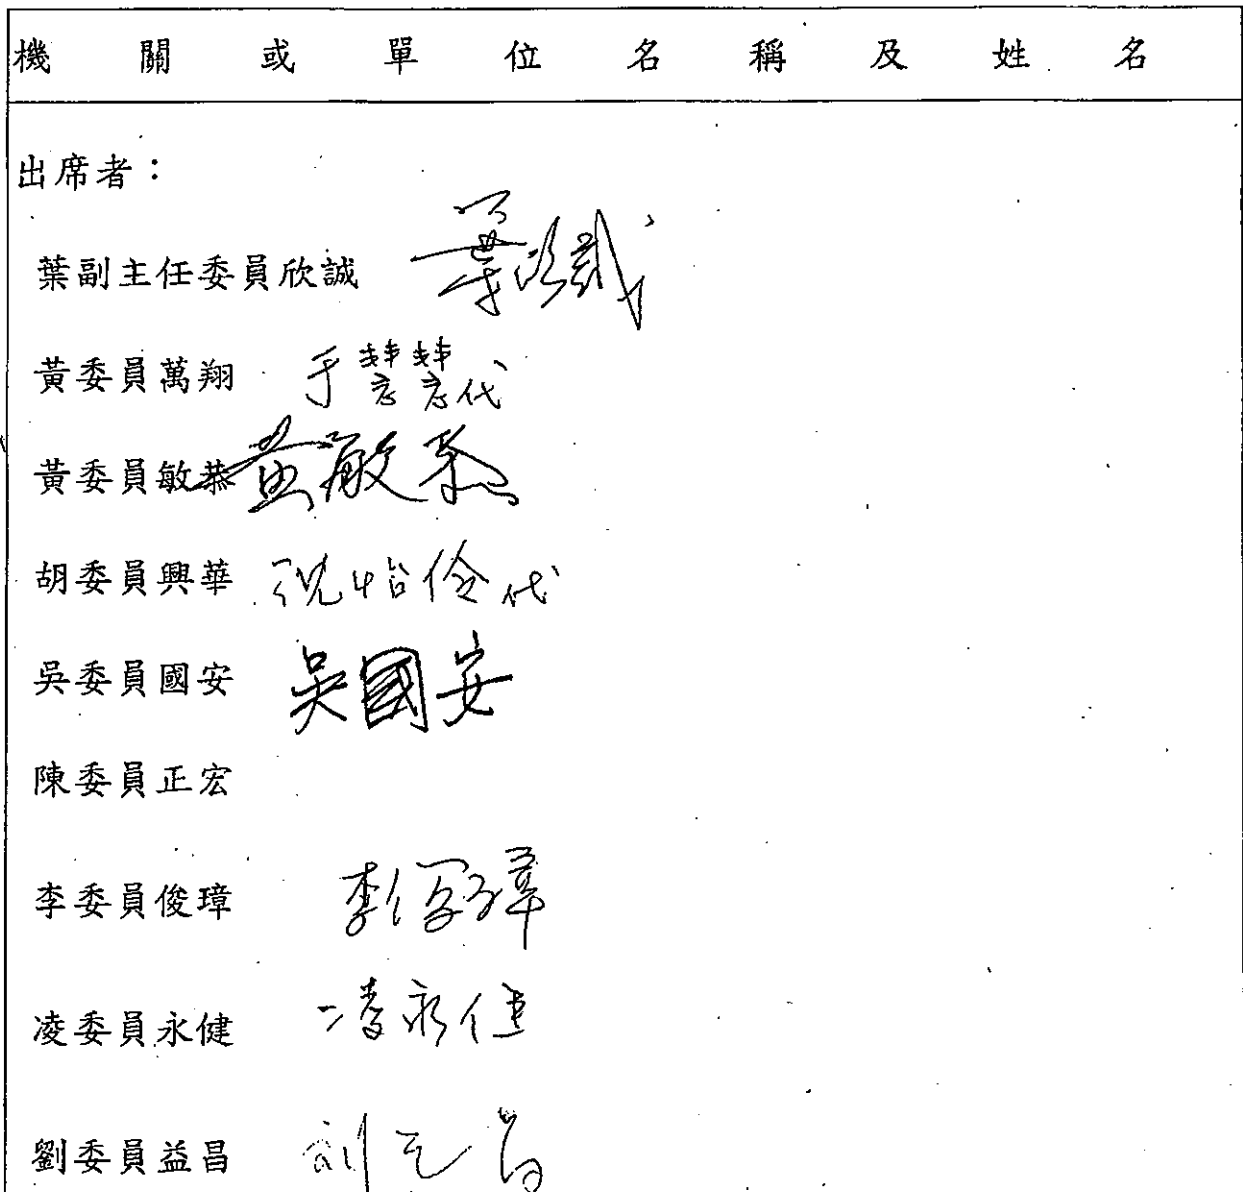 機關或單位名稱及姓名
出席者：
葉副主任委員欣誠 葉欣誠
黃委員萬翔 于慧慧代
黃委員敏恭 黃敏恭
胡委員興華 倪怡伶代
吳委員國安 吳國安
陳委員正宏
李委員俊璋 李俊璋
凌委員永健 凌永健
劉委員益昌 劉益昌